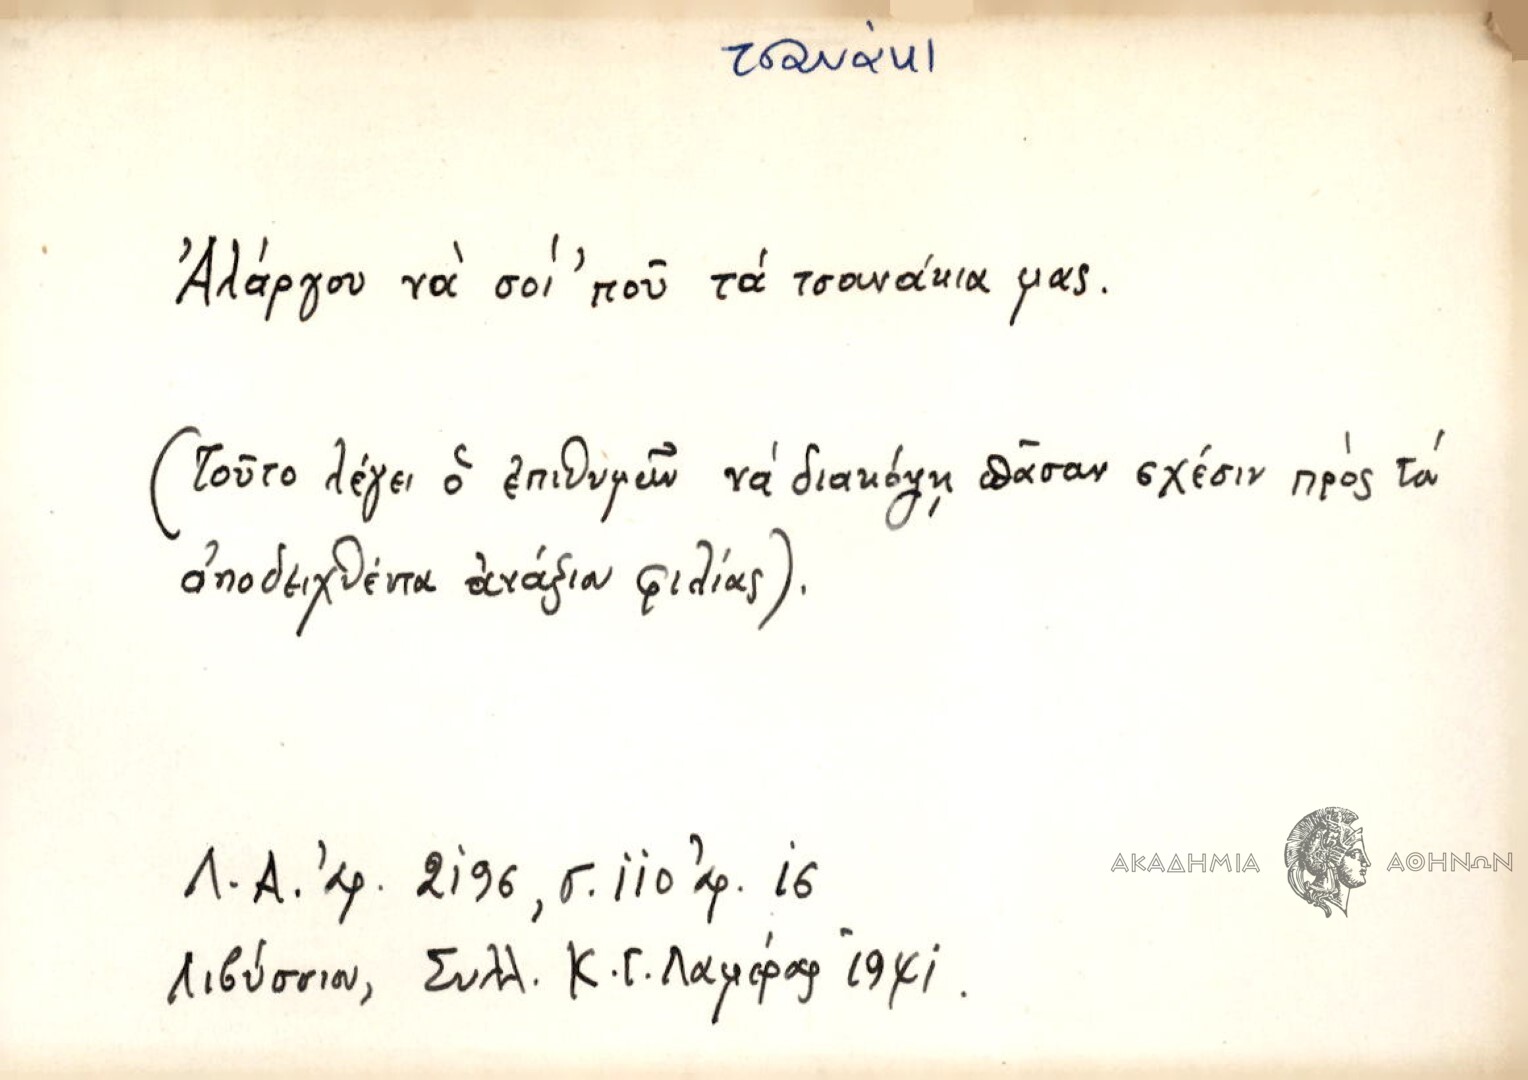 τσανάκι
Ἀλάργου νὰ σοί 'ποῦ τά τσανάκια μας.
(Τοῦτο λέγει ὁ ἐπιθυμῶν νά διακόψῃ πᾶσαν σχέσιν πρὸς τά
ἀποδειχθέντα ἀνάξιον φιλίας).
Λ.Α. ἀρ. 2196, σ. 110 ἀρ. 16
Λιβύσσιον, Συλλ. Κ.Γ. Λαμέρας 1941.
ΑΚΑΔΗΜΙΑ ΑΘΗΝΩΝ